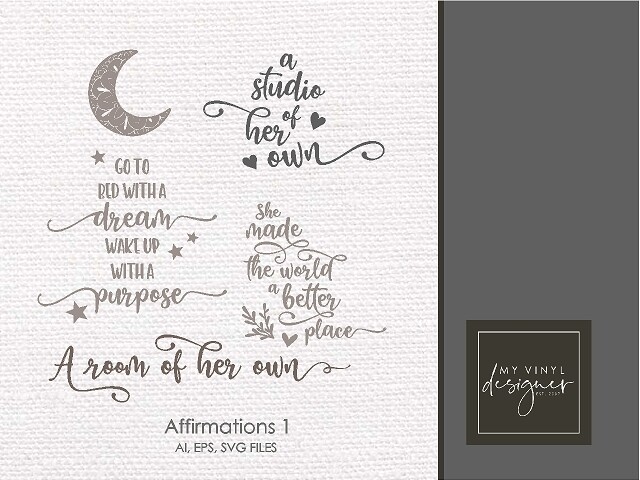 a
studio
of
her
own
GO TO
BED WITH A
dream
WAKE UP
WITH A
purpose
She
made
the world
a
better
place
A room of her own
Affirmations 1
AI, EPS, SVG FILES
MY VINYL
designer